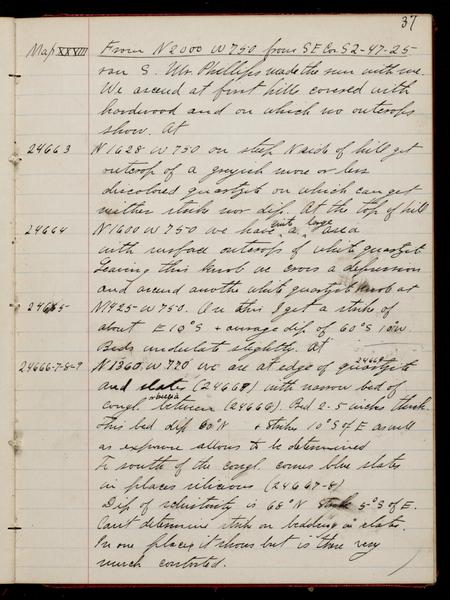 37
Map XXVIII From N2000 W750 from SE Cor S2-47-25
ran S. Mr. Phillips made the run with me.
We ascend at first hills covered with
hardwood and on which no outcrops
show. At
24663 N1628 W750 on steep N side of hill get
outcrop of a greyish more or less
discolored quartzite on which can get
neither strike nor dip. At the top of hill
24664 N1600 W750 we have quite a large area
with surface outcrops of white quartzite
Leaving this knob we cross a depression
and ascend another white quartzite knob at
24665 N1425 W750. On this I get a strike of
about E10°S + average dip of 60°S 10°W.
Beds undulate slightly. At
24666-7-8-9 N1360 W720 we are at edge of quartzite 24669
and slates (24668) with narrow bed of
congl. between (24666). Bed 2-5 inches thick.
This bed dips 60°N + strikes 10°S of E as well
as exposure allows to be determined
To south of the congl. comes blue slates
in places silicious (24667-8)
Dip of schistosity is 68°N strike 5°S of E.
Can't determine strike or bedding in slate.
In one place it shows but is there very
much contorted.